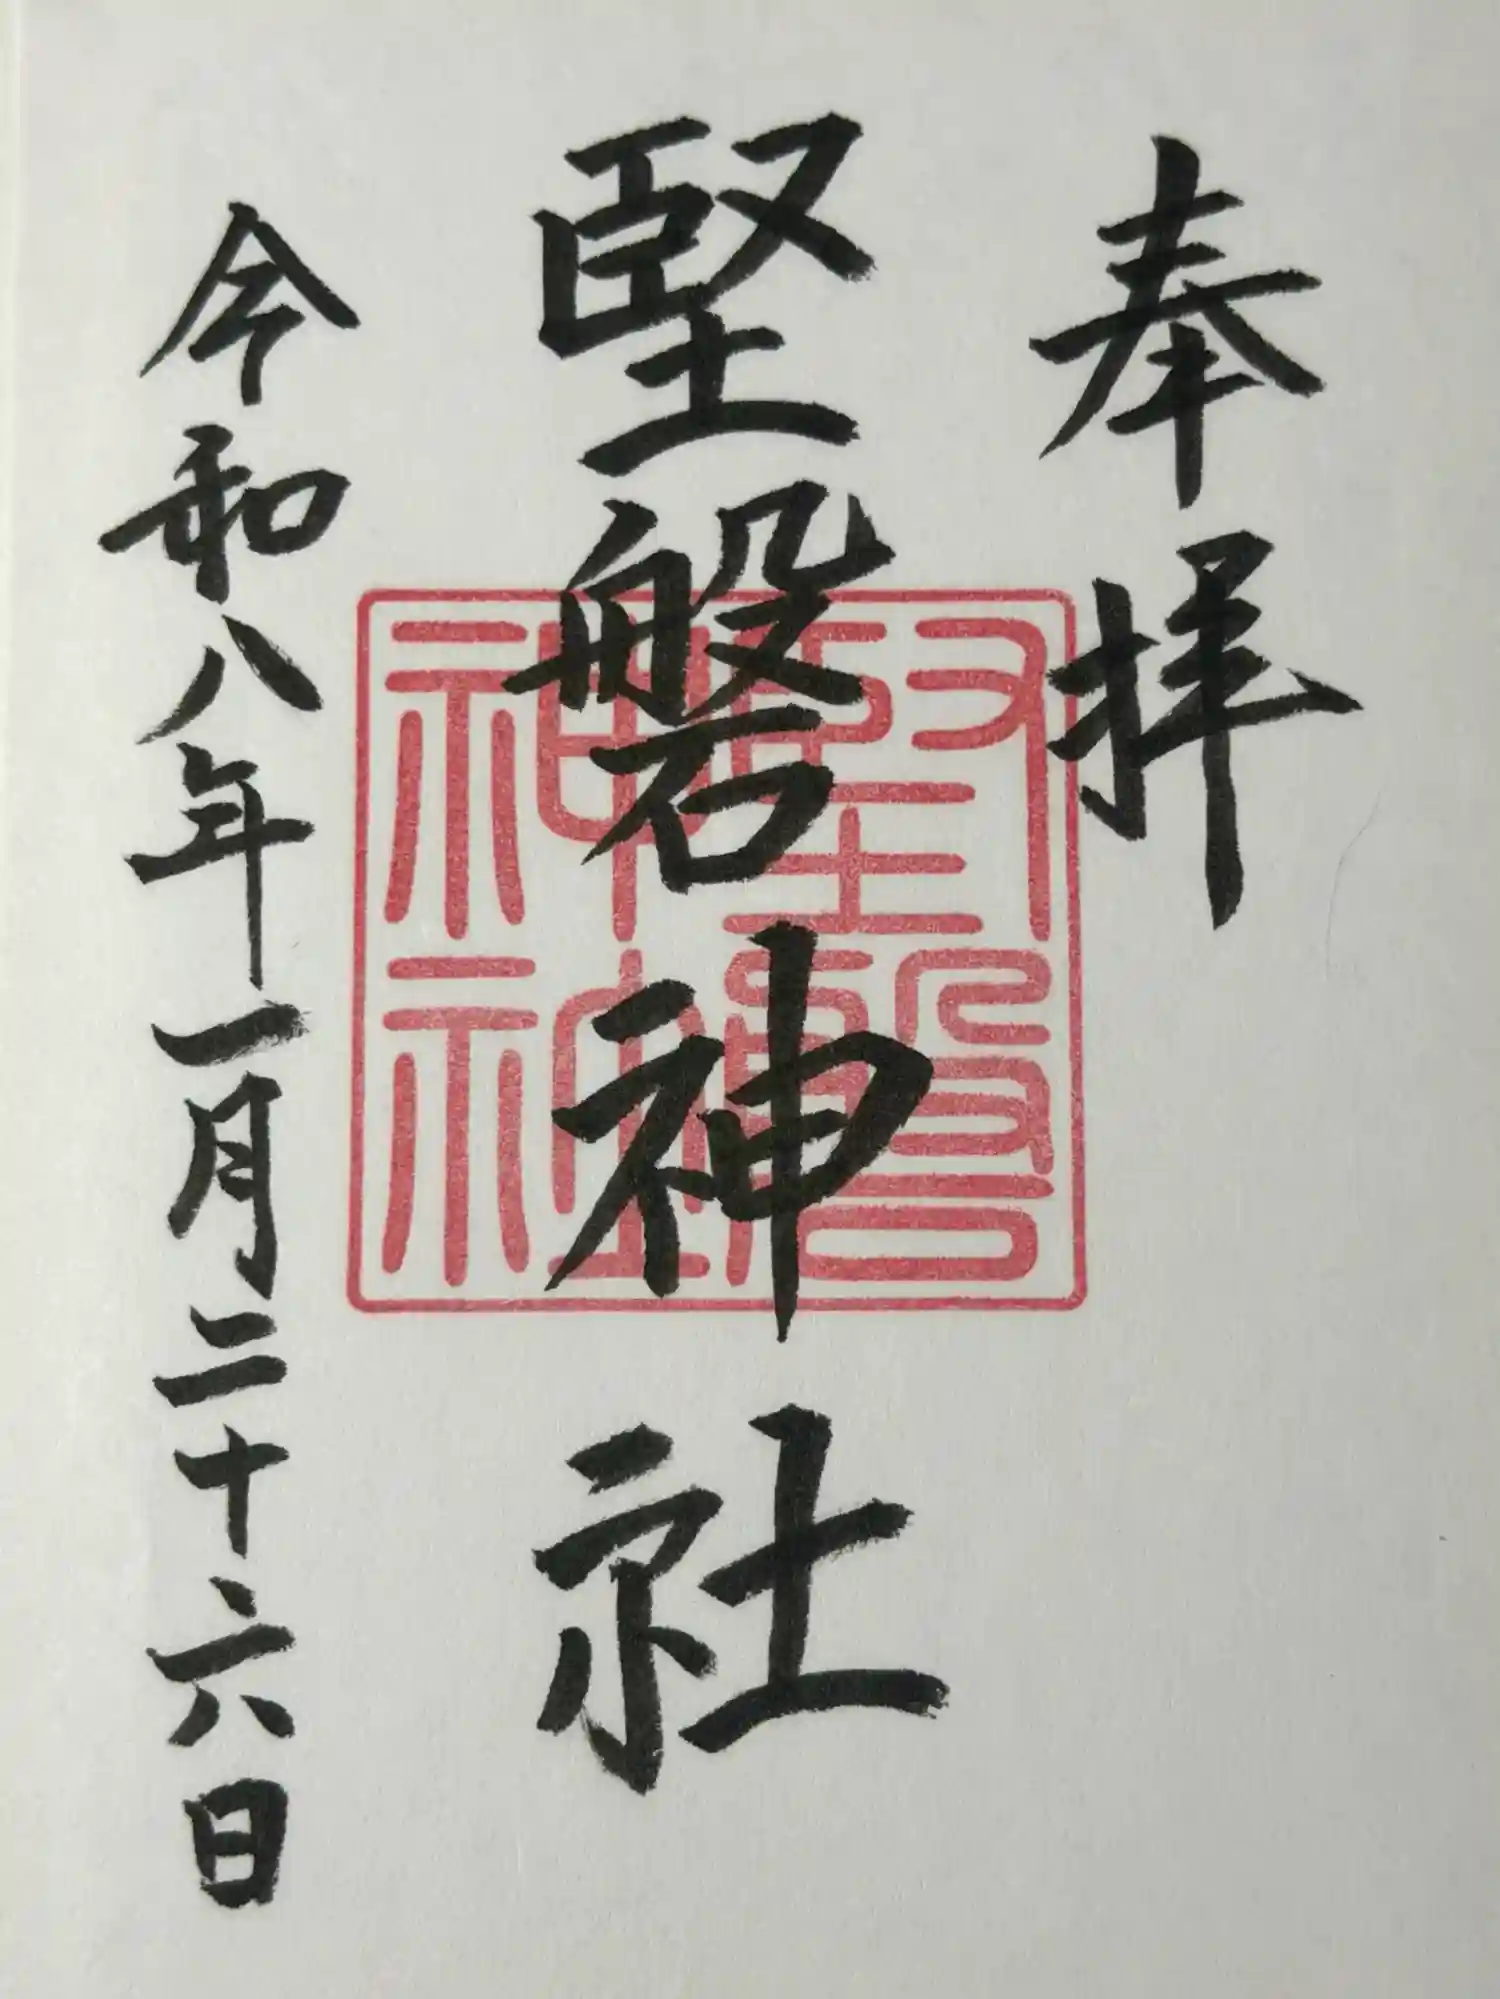 奉拝
堅磐神社
堅磐
神社
令和八年一月二十六日